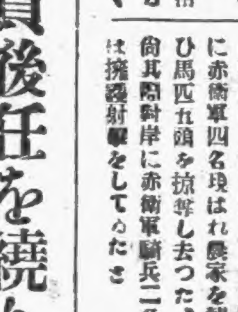 に赤衛軍四名現はれ農家を襲
ひ馬匹五頭を掠奪し去つた、
尙其際對岸に赤衛軍騎兵二
は擁護射撃をしてゐたさ
後任を繞